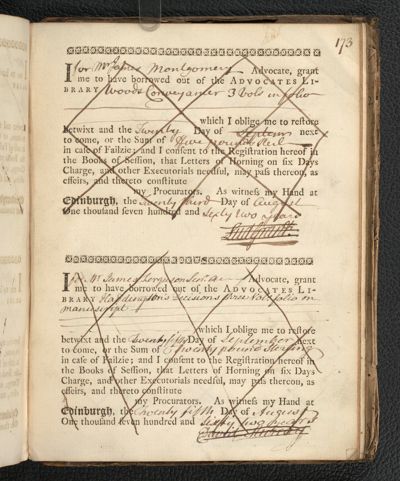 173
I for Mr James Montgomery Advocate, grant
me to have borrowed out of the ADVOCATES LI-
BRARY Woods Conveyancer 3 Vols in folio
which I oblige me to restore
betwixt and the Twenty Day of next
to come, or the Sum of Five pounds Sterl
in case of Failzie; and I consent to the Registration hereof in
the Books of Session, that Letters of Horning on six Days
Charge, and other Executorials needful, may pass thereon, as
effeirs, and thereto constitute
my Procurators. As witness my Hand at
Edinburgh, the twenty third Day of August
One thousand seven hundred and Sixty two years
I for Mr James Ferguson Advocate, grant
me to have borrowed out of the ADVOCATES LI-
BRARY Decisions three Vols folio in
manuscript
which I oblige me to restore
betwixt and the twenty fifth Day of September next
to come, or the Sum of Twenty pound Sterling
in case of Failzie; and I consent to the Registration hereof in
the Books of Session, that Letters of Horning on six Days
Charge, and other Executorials needful, may pass thereon, as
effeirs, and thereto constitute
my Procurators. As witness my Hand at
Edinburgh, the twenty fifth Day of August
One thousand seven hundred and Sixty two years